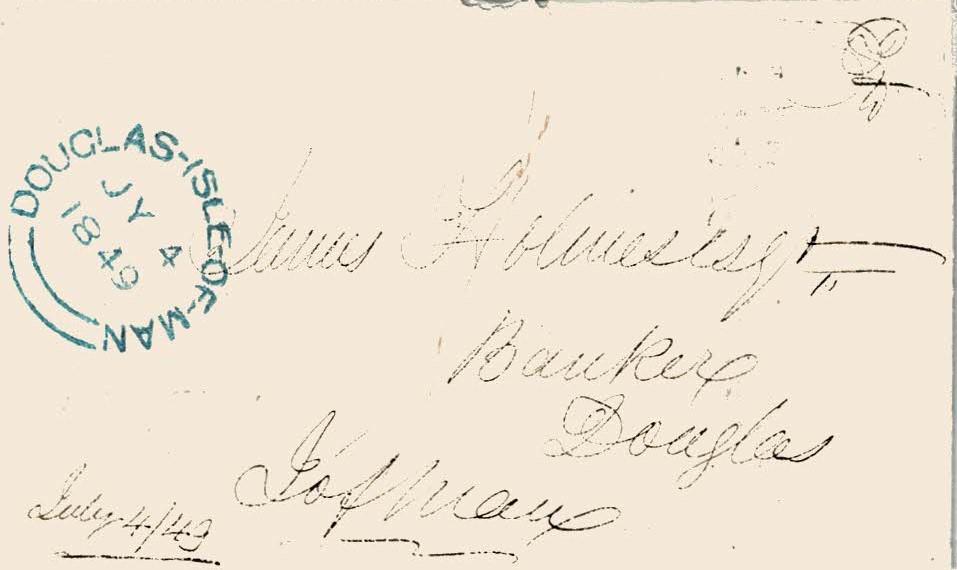 DOUGLAS-ISLE-OF-MAN
JY 4
1849
James Holmes Esqr
Banker
Douglas
I of Man
July 4/49